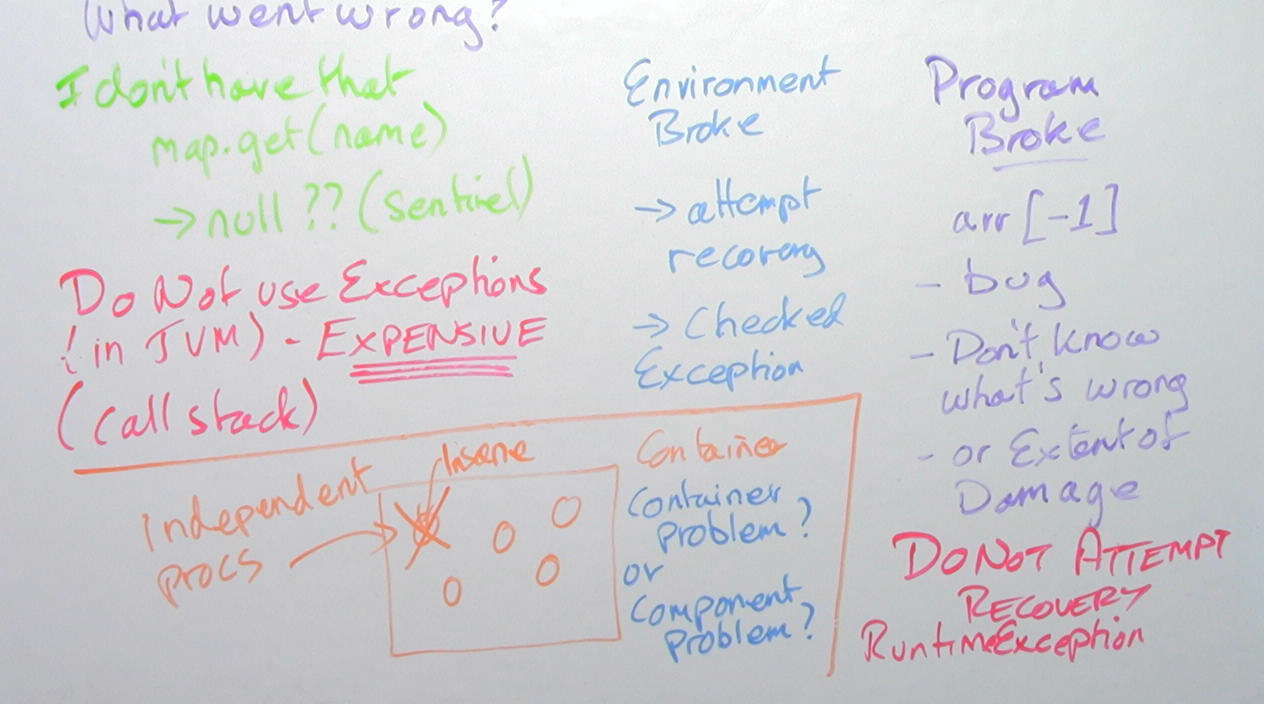 What went wrong?
I don't have that
map.get(name)
→ null ?? (sentinel)
Do Not use Exceptions
(in JVM) - EXPENSIVE
(call stack)
Environment
Broke
→ attempt
recovery
→ Checked
Exception
Program
Broke
arr [-1]
- bug
- Don't know
what's wrong
- or Extent of
Damage
DO NOT ATTEMPT
RECOVERY
RuntimeException
Independent
procs
Insane
Container
Container
Problem?
or
Component
Problem?